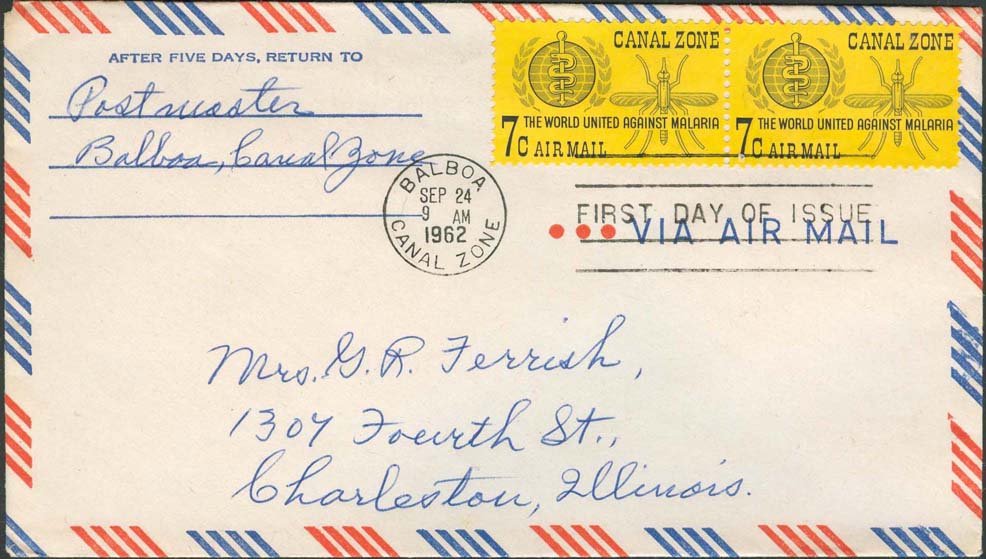 AFTER FIVE DAYS, RETURN TO
Postmaster
Balboa, Canal Zone
CANAL ZONE
THE WORLD UNITED AGAINST MALARIA
7C AIR MAIL
CANAL ZONE
THE WORLD UNITED AGAINST MALARIA
7C AIR MAIL
BALBOA
SEP 24
9 AM
1962
CANAL ZONE
FIRST DAY OF ISSUE
VIA AIR MAIL
Mrs. G. R. Ferrish,
1307 Fourth St.,
Charleston, Illinois.